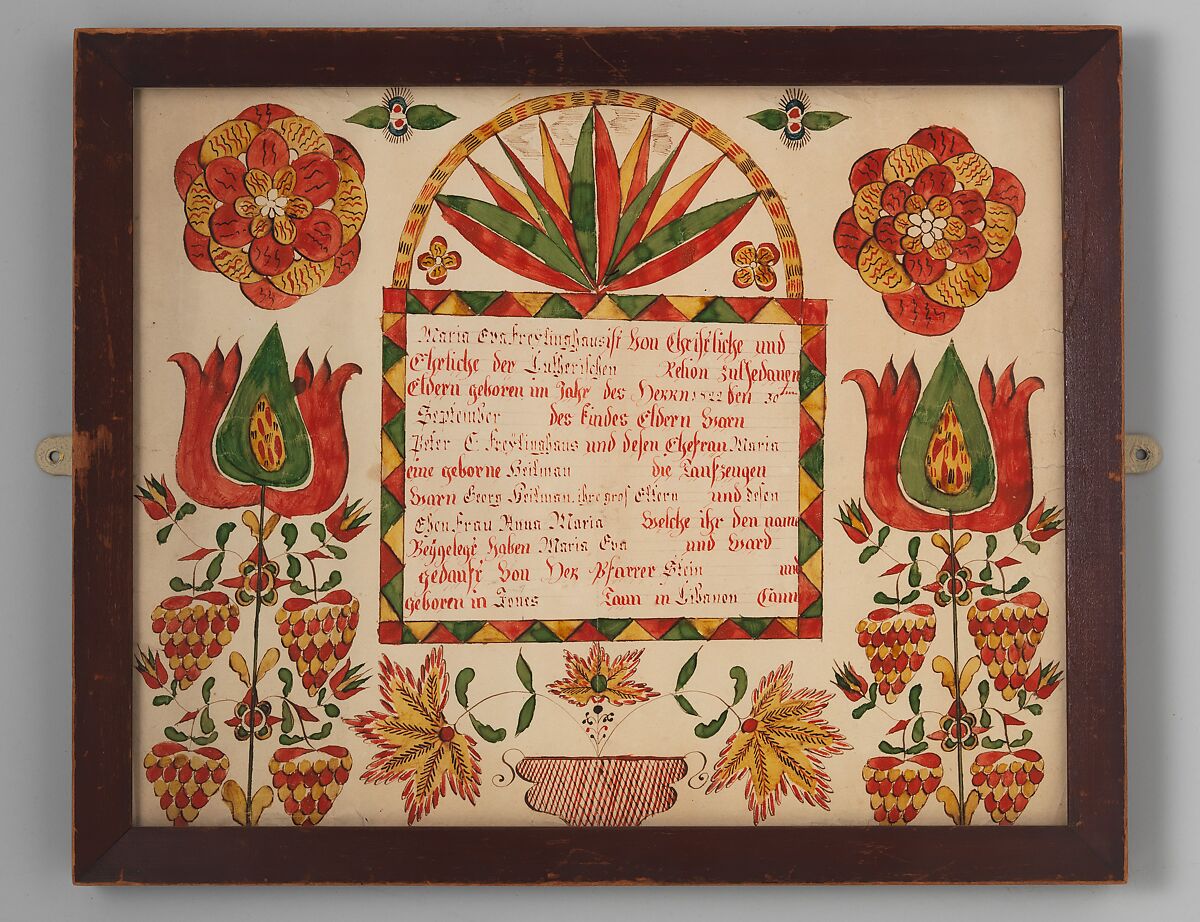 Maria Eva Freylinghaus ist Von Christliche und
Ehrliche der Lutherischen Relion
Eldern geboren im Jahr des Herrn 1822 den 30ten
September des kindes Eldern Warn
Peter C. Freylinghaus und desen Ehefrau Maria
eine geborne Heilman die Taufzeugen
Warn Georg Heilman, ihre gros Eltern und desen
Ehen Frau Anna Maria Welche ihr den name
Beygelegt haben Maria Eva und Ward
gedauft Von Der Pfarrer Stein und
geboren in Taun in Libanon Caunt